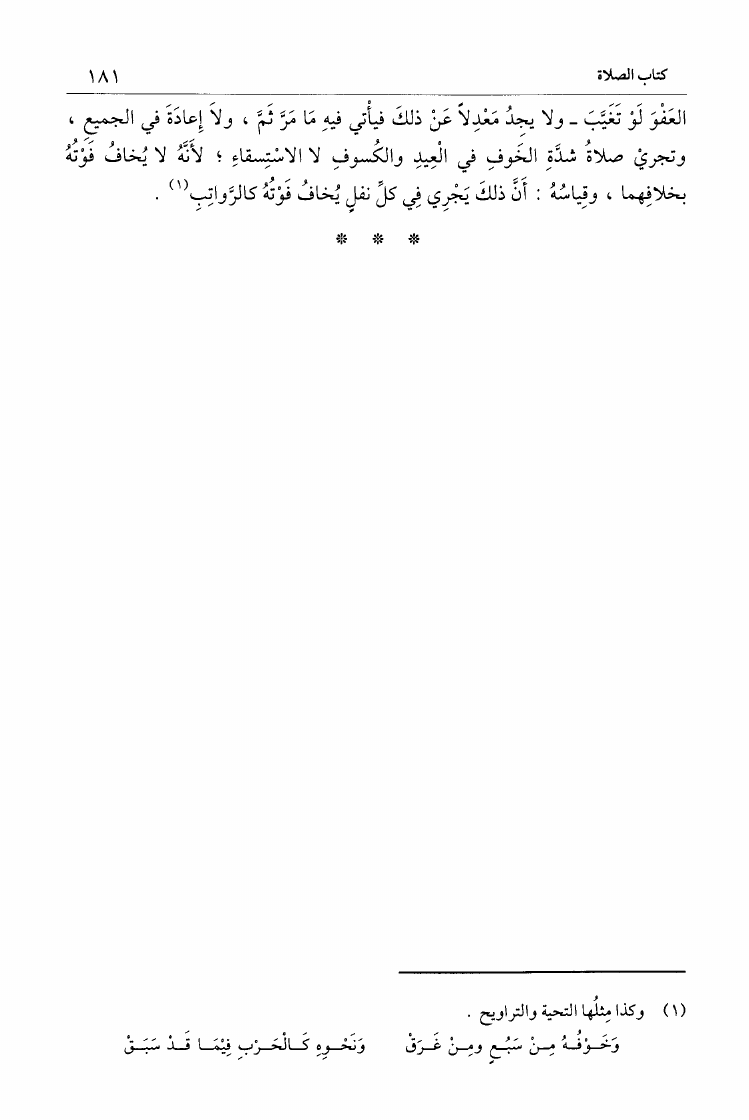 كتاب الصلاة ١٨١
العَفْوَ لَوْ تَغَيَّبَ ـ ولا يجِدُ مَعْدِلاً عَنْ ذلكَ فيأْتي فيهِ مَا مَرَّ ثَمَّ ، ولاَ إِعادَةَ في الجميعِ ،
وتجريْ صلاةُ شدَّةِ الخَوفِ في الْعِيدِ والكُسوفِ لا الاسْتِسقاءِ ؛ لأَنَّهُ لا يُخافُ فَوْتُهُ
بخلافِهما ، وقِياسُهُ : أَنَّ ذلكَ يَجْرِي فِي كلِّ نفلٍ يُخافُ فَوْتُهُ كالرَّواتِبِ(١) .
* * *
(١) وكذا مِثلُها التحية والتراويح .
وَخَـوْفُـهُ مِـنْ سَبُـعٍ ومِـنْ غَـرَقْ وَنَحْـوِهِ كَـالْحَـرْبِ فِيْمَـا قَـدْ سَبَـقْ